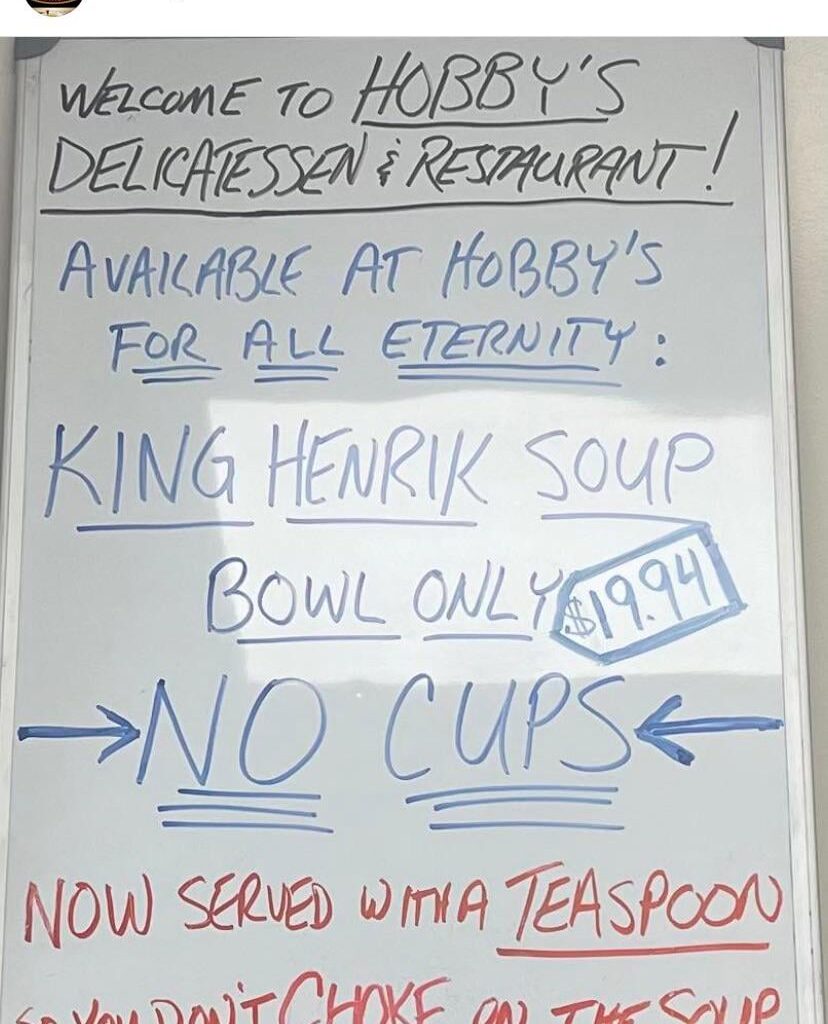 WELCOME TO HOBBY'S
DELICATESSEN & RESTAURANT!
AVAILABLE AT HOBBY'S
FOR ALL ETERNITY:
KING HENRIK SOUP
BOWL ONLY $19.94
NO CUPS
NOW SERVED WITH A TEASPOON
SO YOU DON'T CHOKE ON THE SOUP